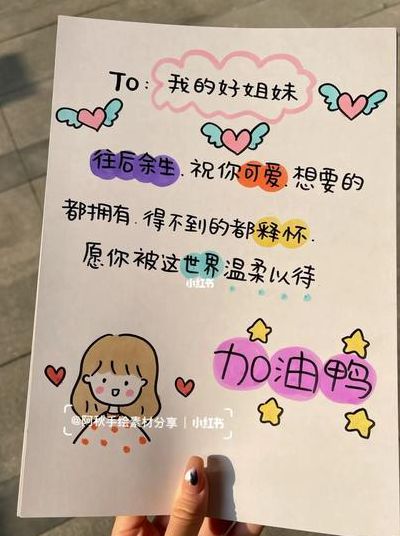 To: 我的好姐妹
往后余生.祝你可爱.想要的
都拥有.得不到的都释怀.
愿你被这世界温柔以待
小红书
加油鸭
@阿秋手绘素材分享 | 小红书